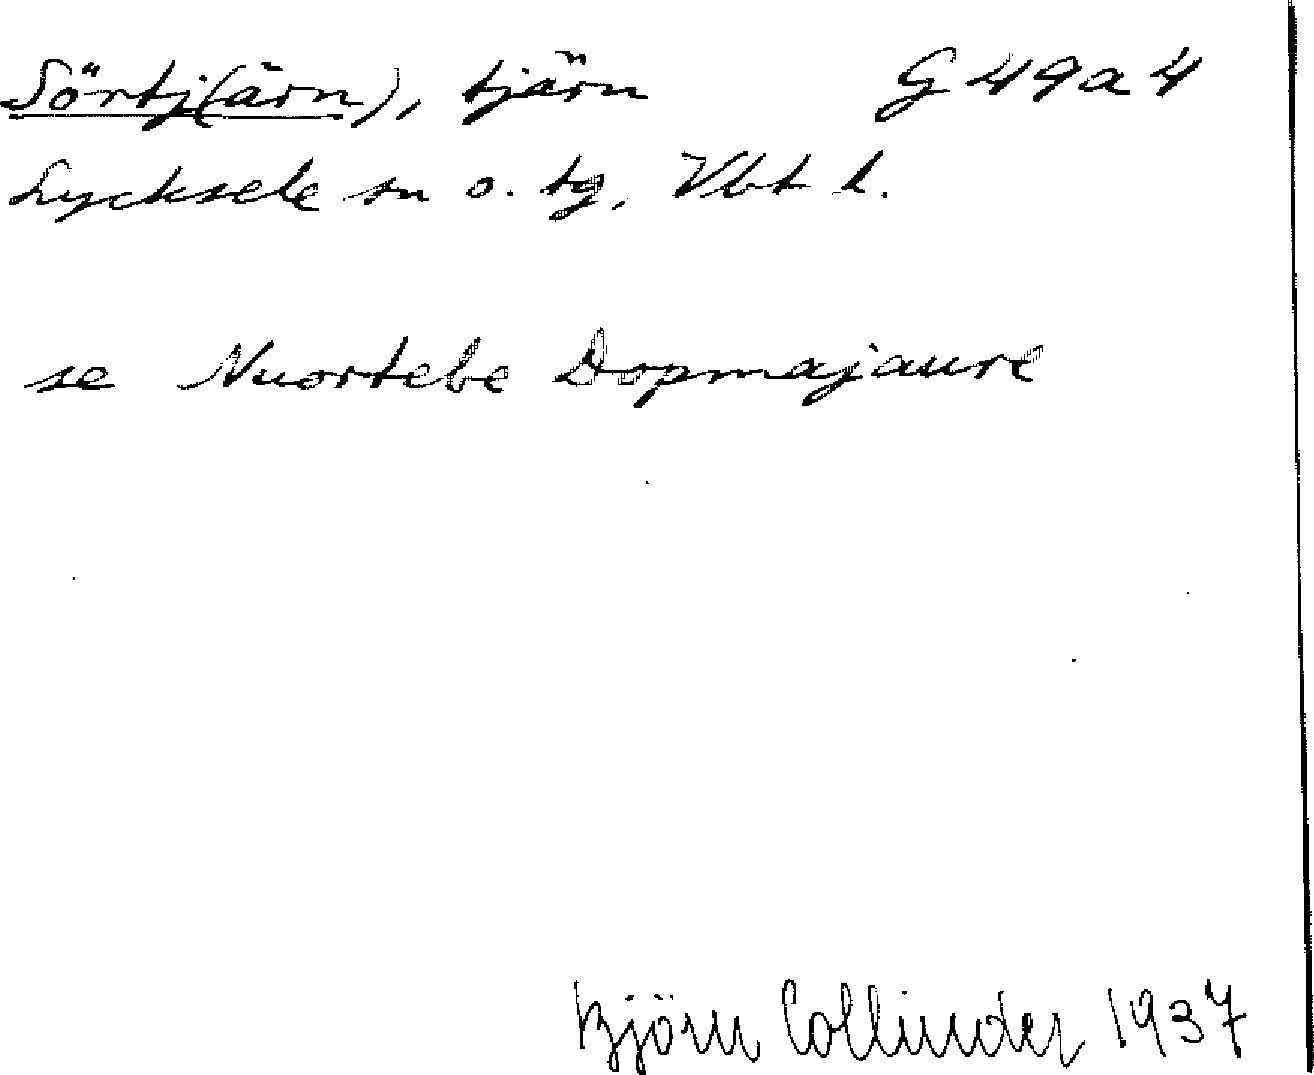 Sörtj(ärn), tjärn G 49 a 4
Lycksele sn o. tg, Vbt l.
se Nuortebe Dopmajaure
Björn Collinder 1937